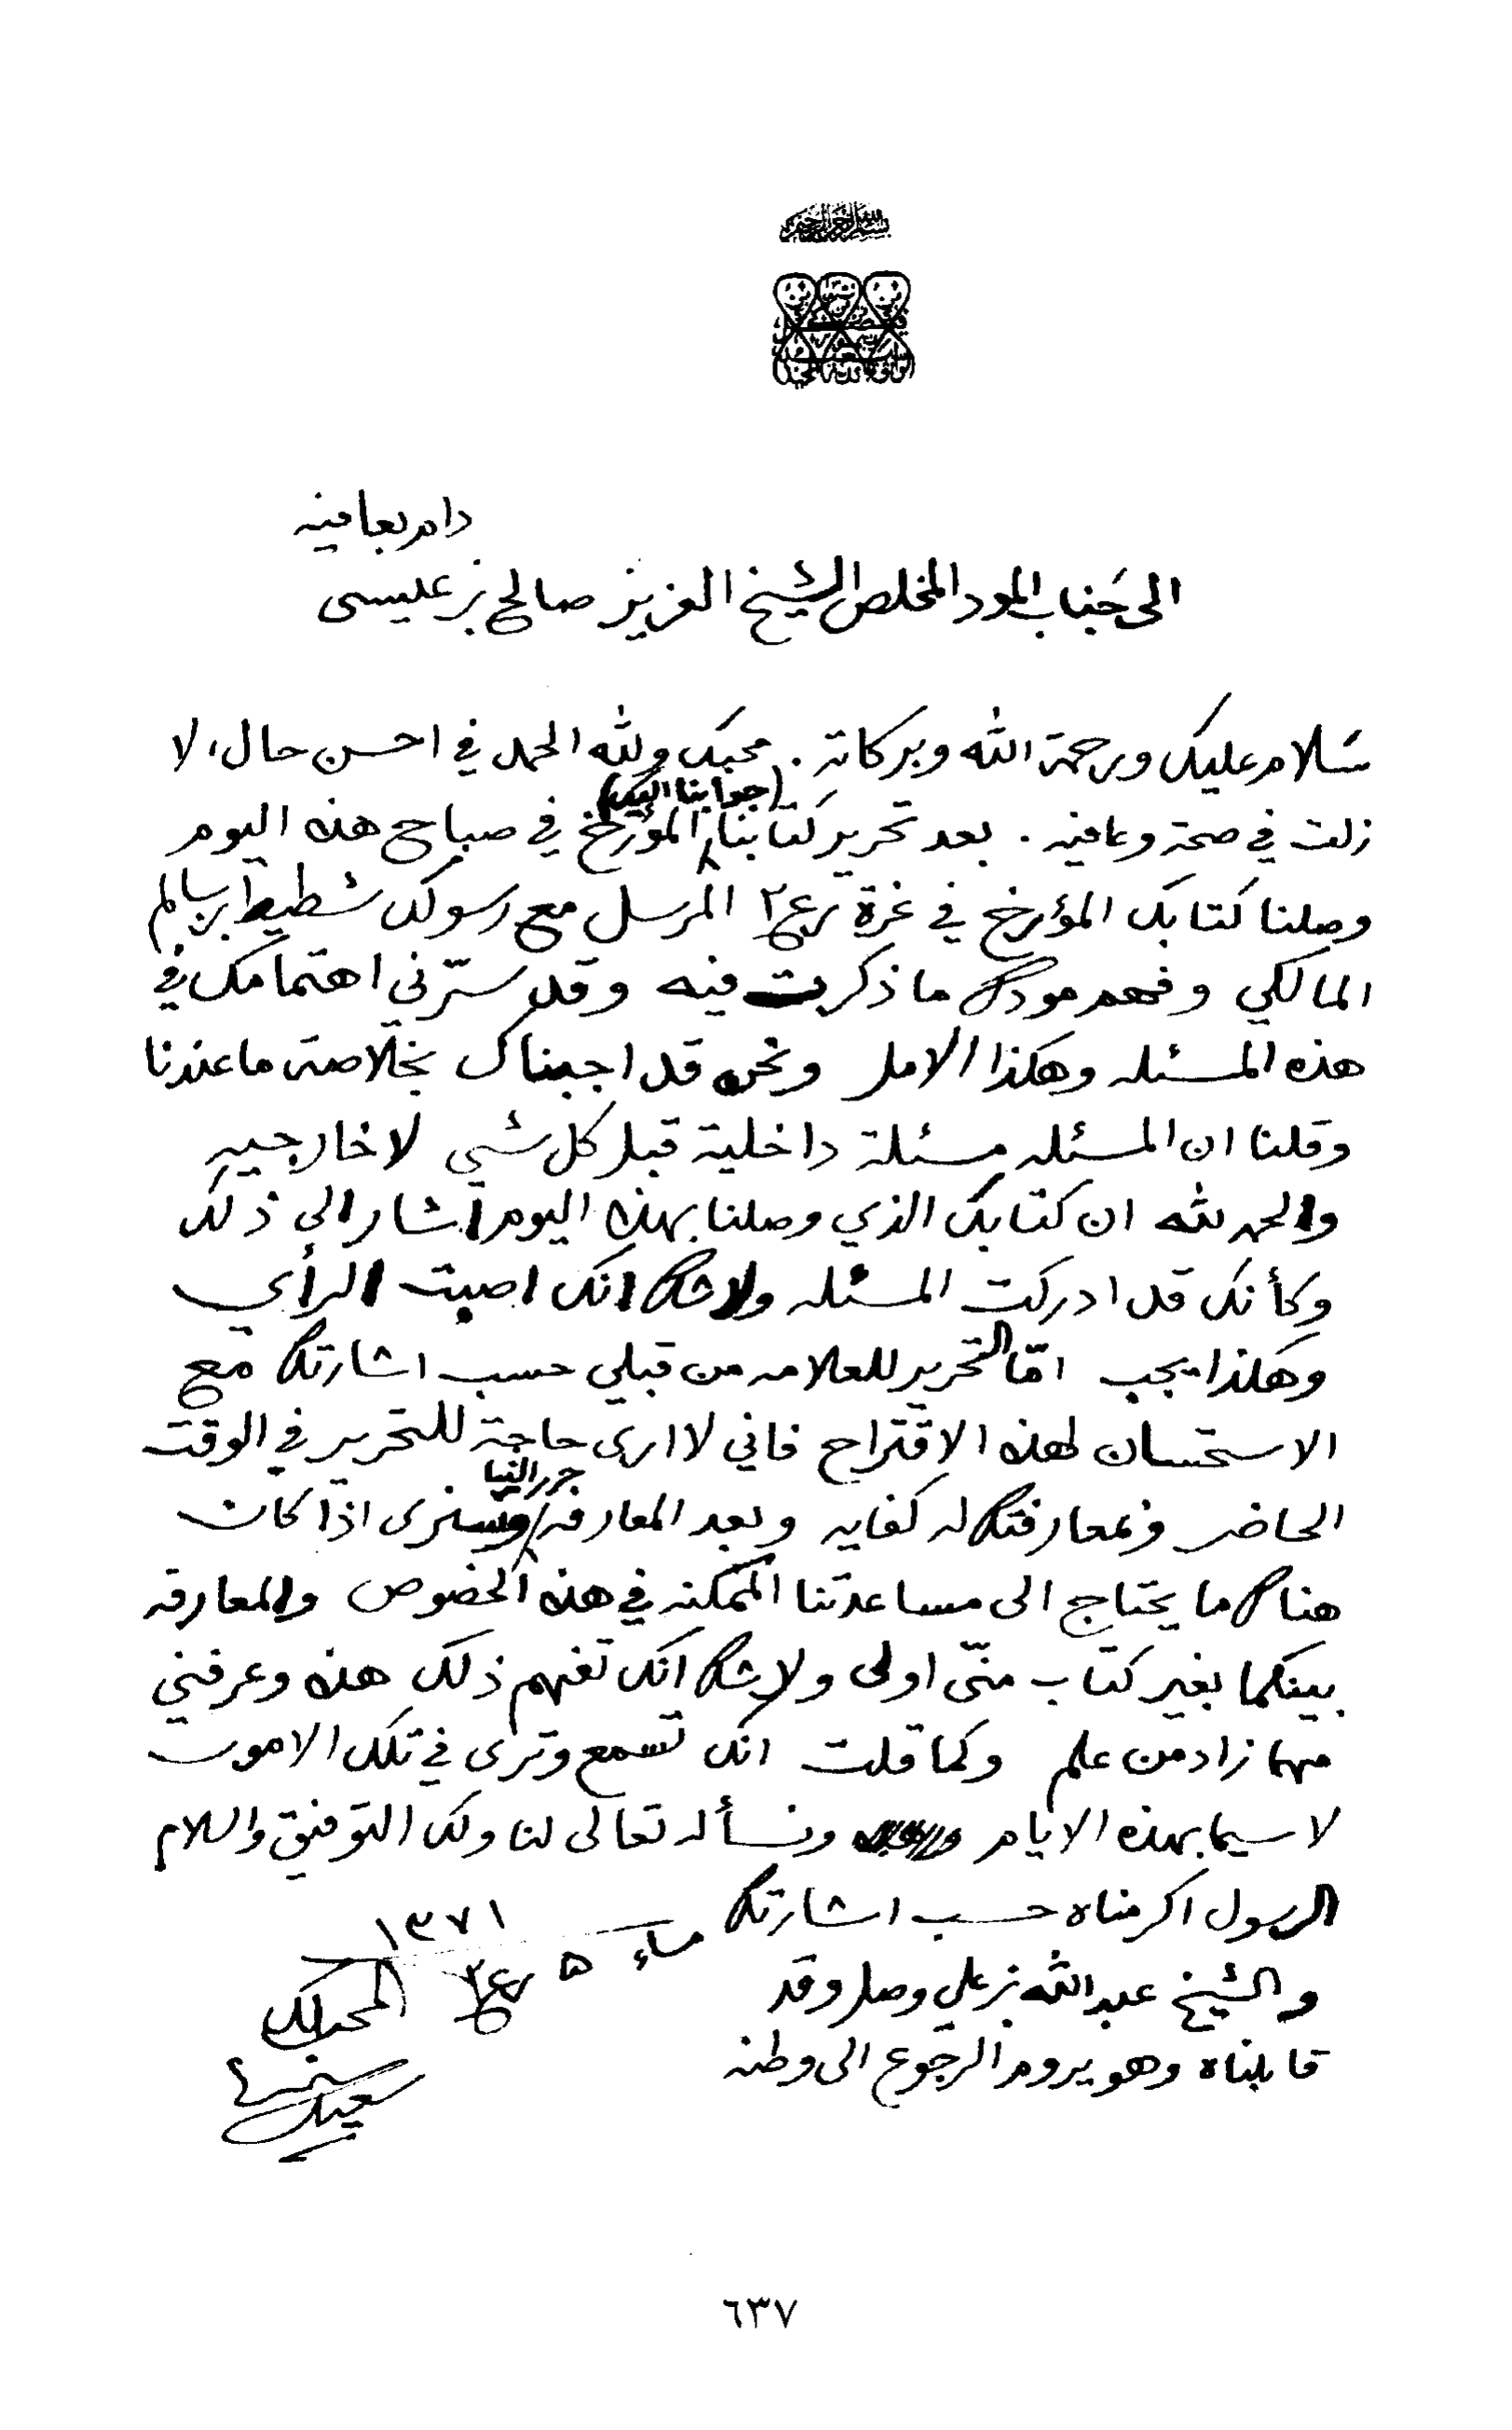 بسم الله الرحمن الرحيم
دام بعافيه
الى جَناب المود المخلص الشيخ العزيز صالح بن عيسى
سَلام عليك ورحمة الله وبركاته . محبك ولله الحمد في احسن حال، لا
زلت في صحة وعافيه . بعد تحرير كتابنا (جوابنا اليك) المؤرخ في صباح هذه اليوم
وصلنا كتابك المؤرخ في غرة ربيع٢ المرسل مع رسولك شطيط بن سالم
المالكي وفهم مودك ما ذكرت فيه وقد سرّني اهتمامك في
هذه المسئله وهكذا الامل ونحن قد اجبناك بخلاصة ما عندنا
وقلنا ان المسئله مسئلة داخلية قبل كل شي لا خارجيه
والحمد لله ان كتابك الذي وصلنا بهذه اليوم اشار الى ذلك
وكأنك قد ادركت المسئله ولا شك انك اصبت الرأي
وهكذا يجب امّا التحرير للعلامه من قبلي حسب اشارتك مع
الاستحسان لهذه الاقتراح فاني لا ارى حاجة للتحرير في الوقت
الحاضر فمعارفتك له كفايه وبعد المعارفه حرر الينا وسنرى اذا كان
هناك ما يحتاج الى مساعدتنا الممكنه في هذه الخصوص والمعارفه
بينكما بغير كتاب منّى اولى ولا شك انك تفهم ذلك هذه وعرفني
مهما زاد من علم وكما قلت انك تسمع وترى في تلك الامور
لا سيما بهذه الايام ونسأله تعالى لنا ولك التوفيق والسلام
الرسول اكرمناه حسب اشارتك
والشيخ عبدالله بن علي وصل وقد
قابلناه وهو يروم الرجوع الى وطنه
مساء ٥ ربيع٢ ١٣٧١
المحب لك
سعيد
٦٣٧